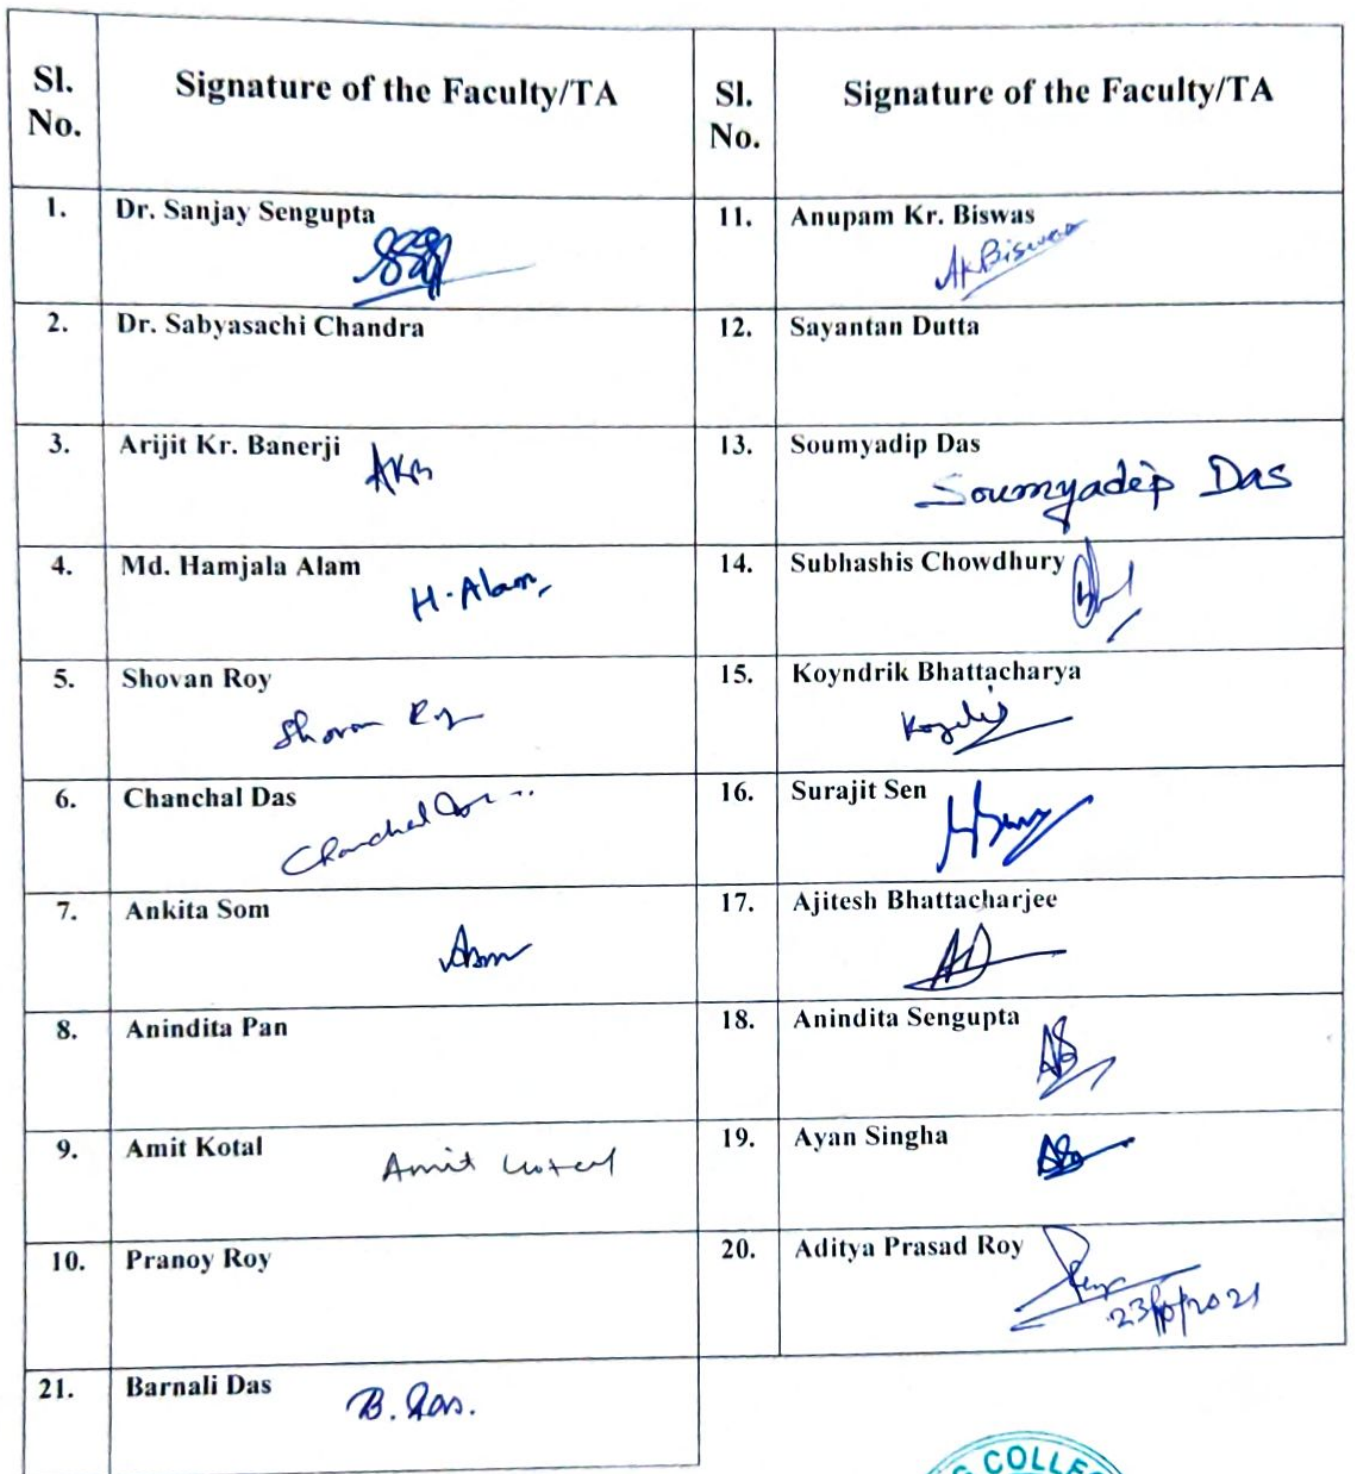 Sl. No.
Signature of the Faculty/TA
Sl. No.
Signature of the Faculty/TA
1.
Dr. Sanjay Sengupta
11.
Anupam Kr. Biswas
AKBiswas
2.
Dr. Sabyasachi Chandra
12.
Sayantan Dutta
3.
Arijit Kr. Banerji
AKB
13.
Soumyadip Das
Soumyadip Das
4.
Md. Hamjala Alam
H. Alam
14.
Subhashis Chowdhury
5.
Shovan Roy
Shovan Roy
15.
Koyndrik Bhattacharya
6.
Chanchal Das
Chanchal Das
16.
Surajit Sen
7.
Ankita Som
17.
Ajitesh Bhattacharjee
8.
Anindita Pan
18.
Anindita Sengupta
9.
Amit Kotal
Amit Kotal
19.
Ayan Singha
10.
Pranoy Roy
20.
Aditya Prasad Roy
21.
Barnali Das
B. Das.
COLLE